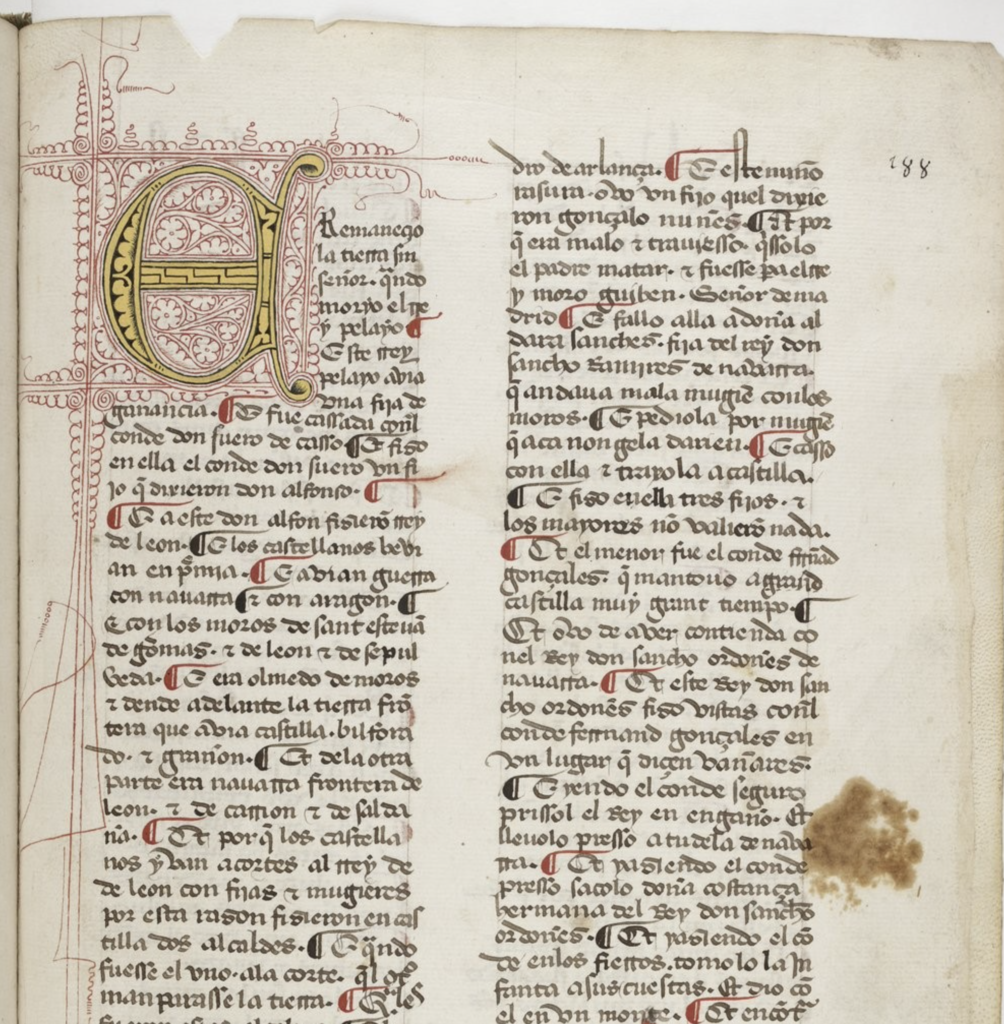 E
Remaneçio
la tierra sin
señor. q̃ndo
moryo el rre
y pelayo ¶
Este rrey
pelayo avia
vna fija de
ganancia. ¶ E fue cassada con̄l
conde don suero de casso ¶ E fiso
en ella el conde don suero vn fi
jo q̃ dixieron don alfonso. ¶
¶ E a este don alfon fisierõ rrey
de leon. ¶ E los castellanos bevi
an en p̃mia. ¶ E avian guerra
con nauarra ¶ τ con aragon. ¶
E con los moros de sant esteuã
de gõmas. τ de leon τ de sepul
veda. ¶ E era olmedo de moros
τ dende adelante la tierra frõ
tera que avia castilla. bilfora
do. τ grañon. ¶ Et dela otra
parte era nauarra frontera de
leon. τ de carrion τ de salda
ña. ¶ Et por q̃ los castella
nos yvan acortes al rrey de
de leon con fijas τ mugieres
por esta rason fisieron en cas
tilla dos alcaldes. ¶ E q̃ndo
fuesse el vno. ala corte. q̃l otº
manparasse la tierra. ¶
188
dro de arlança. ¶ E este nuño
rasura. ovo vn fijo quel dixie
ron gonçalo nuñes. ¶ Et por
q̃ era malo τ trauiesso. q̃ssolo
el padre matar. τ fuesse pa el rre
y moro guiben. Señor de ma
drid ¶ E fallo alla a doña al
dara sanches. fija del rey don
sancho Ramires de nauarra.
q̃ andaua mala mugiẽ con los
moros. ¶ E pediola por mugiẽ
q̃ aca non gela darien. ¶ E casso
con ella τ traxola a castilla.
¶ E fiso en ella tres fijos. τ
los mayores nõ valierõ nada.
¶ Et el menor fue el conde ferrãd
gonçales. q̃ mantouo agrand
castilla muy grant tiempo. ¶
Et ovo de aver contienda co
nel Rey don sancho ordoñes de
nauarra. ¶ Et este Rey don san
cho ordoñes fiso vistas con̄l
conde ferrnand gonçales en
vn lugar q̃ diçen vañares.
¶ E yendo el conde seguro
prissol el Rey en engaño. Et
lleuolo presso a tudela de naba
rra. ¶ Et yasiendo el conde
presso sacolo doña costança
hermana del Rey don sancho
ordoñes. ¶ Et yasiendo el cõ
de enlos fierros. tomolo la In
fanta a sus cuestas. Et dio cõ
el en vn monte. ¶ Et